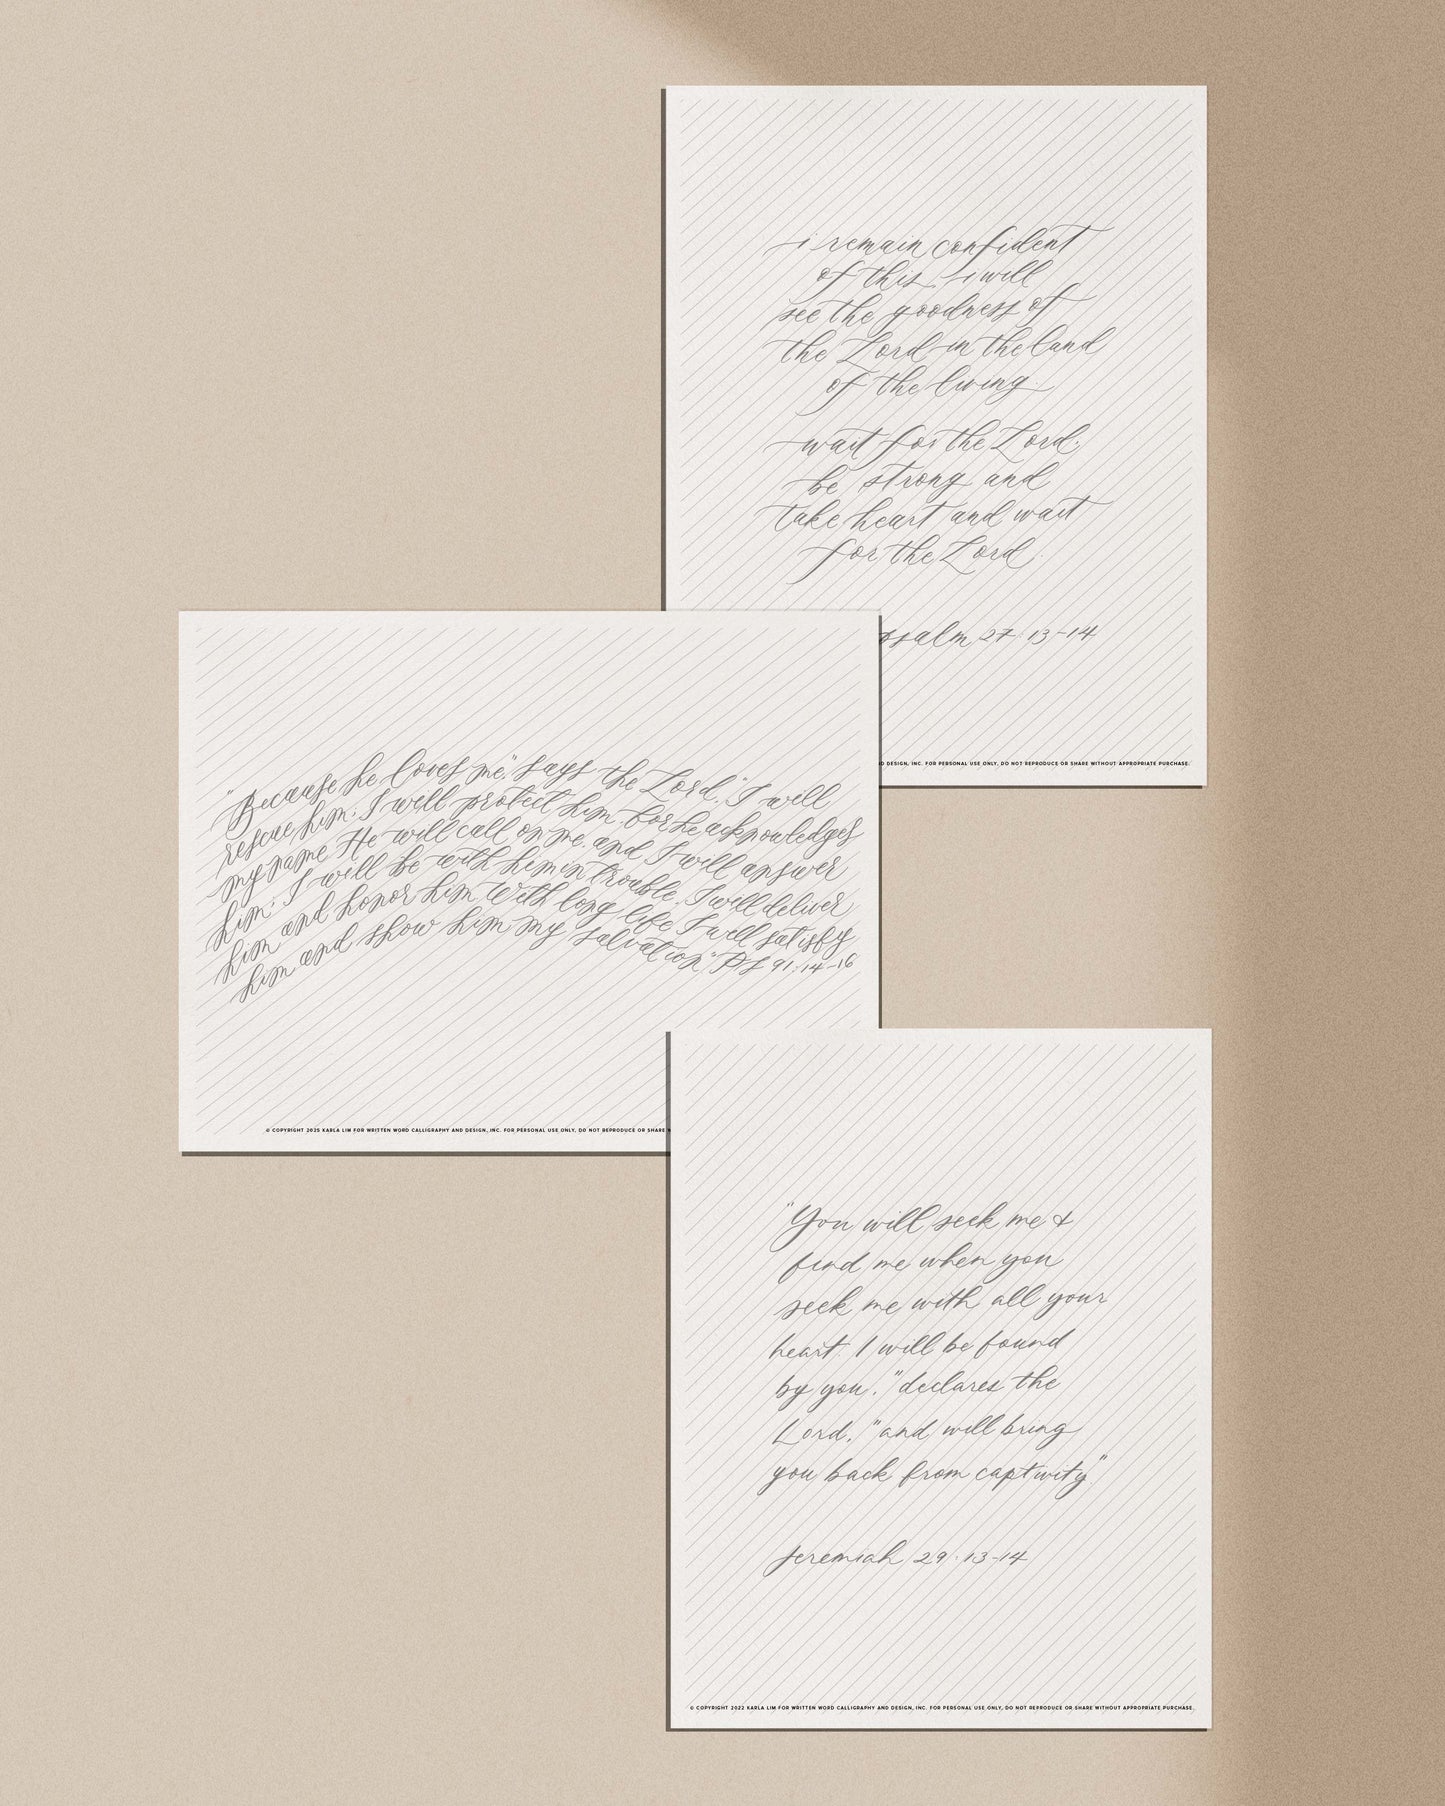 i remain confident
of this: i will
see the goodness of
the Lord in the land
of the living.
wait for the Lord;
be strong and
take heart and wait
for the Lord.
psalm 27:13-14
D DESIGN, INC. FOR PERSONAL USE ONLY, DO NOT REPRODUCE OR SHARE WITHOUT APPROPRIATE PURCHASE.
"Because he loves me," says the Lord, "I will
rescue him; I will protect him, for he acknowledges
my name. He will call on me, and I will answer
him; I will be with him in trouble, I will deliver
him and honor him. With long life I will satisfy
him and show him my salvation." PS 91:14-16
© COPYRIGHT 2025 KARLA LIM FOR WRITTEN WORD CALLIGRAPHY AND DESIGN, INC. FOR PERSONAL USE ONLY, DO NOT REPRODUCE OR SHARE
"You will seek me &
find me when you
seek me with all your
heart. I will be found
by you," declares the
Lord, "and will bring
you back from captivity"
Jeremiah 29:13-14
© COPYRIGHT 2022 KARLA LIM FOR WRITTEN WORD CALLIGRAPHY AND DESIGN, INC. FOR PERSONAL USE ONLY, DO NOT REPRODUCE OR SHARE WITHOUT APPROPRIATE PURCHASE.